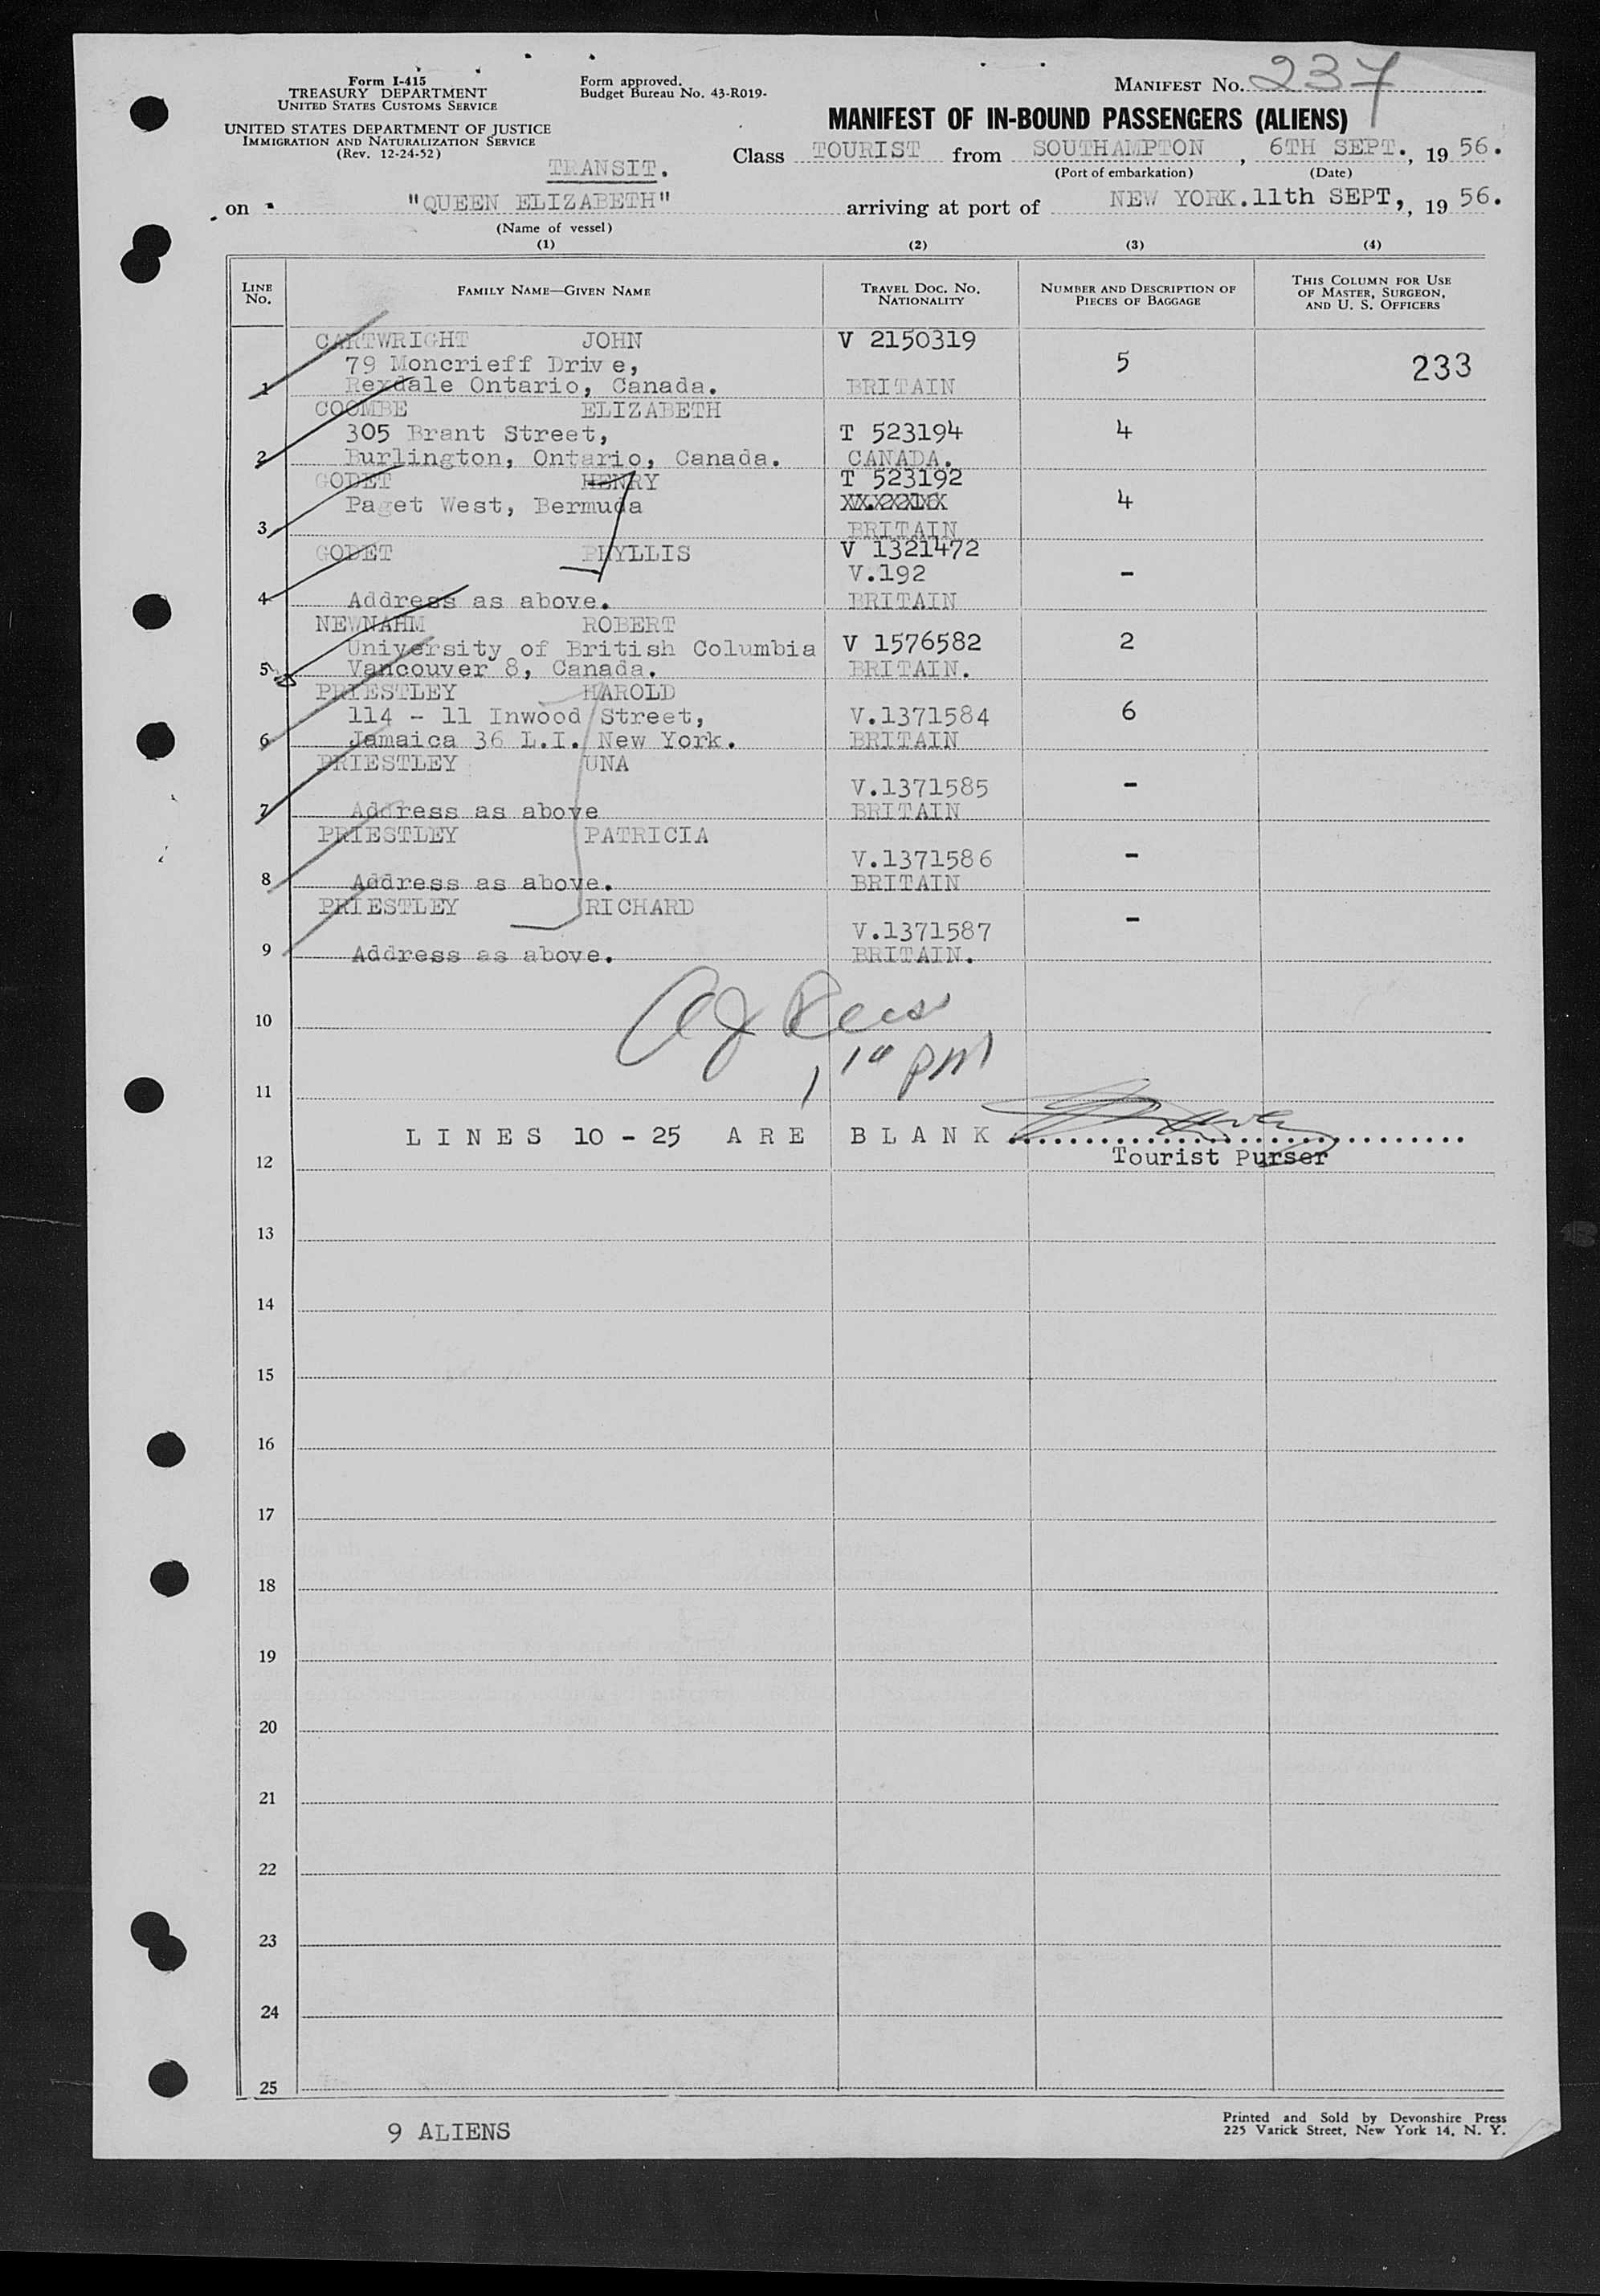 Form I-415
TREASURY DEPARTMENT
UNITED STATES CUSTOMS SERVICE
UNITED STATES DEPARTMENT OF JUSTICE
IMMIGRATION AND NATURALIZATION SERVICE
(Rev. 12-24-52)
Form approved.
Budget Bureau No. 43-R019-
MANIFEST No. 237
MANIFEST OF IN-BOUND PASSENGERS (ALIENS)
TRANSIT.
Class TOURIST from SOUTHAMPTON, 6TH SEPT., 19 56.
(Port of embarkation) (Date)
on "QUEEN ELIZABETH" arriving at port of NEW YORK. 11th SEPT,, 19 56.
(Name of vessel)
(1) (2) (3) (4)
LINE No. FAMILY NAME—GIVEN NAME TRAVEL DOC. NO. NATIONALITY NUMBER AND DESCRIPTION OF PIECES OF BAGGAGE THIS COLUMN FOR USE OF MASTER, SURGEON, AND U. S. OFFICERS
CARTWRIGHT JOHN V 2150319
79 Moncrieff Drive, 5 233
1 Rexdale Ontario, Canada. BRITAIN
COOMBE ELIZABETH
305 Brant Street, T 523194 4
2 Burlington, Ontario, Canada. CANADA.
GODET HENRY T 523192
Paget West, Bermuda 4
3 BRITAIN
GODET PHYLLIS V 1321472
V.192 -
4 Address as above. BRITAIN
NEWNAHM ROBERT
University of British Columbia V 1576582 2
5 Vancouver 8, Canada. BRITAIN.
PRIESTLEY HAROLD
114 - 11 Inwood Street, V.1371584 6
6 Jamaica 36 L.I. New York. BRITAIN
PRIESTLEY UNA
V.1371585 -
7 Address as above BRITAIN
PRIESTLEY PATRICIA
V.1371586 -
8 Address as above. BRITAIN
PRIESTLEY RICHARD
V.1371587 -
9 Address as above. BRITAIN.
10
pm
11
LINES 10 - 25 ARE BLANK
Tourist Purser
12
13
14
15
16
17
18
19
20
21
22
23
24
25
9 ALIENS
Printed and Sold by Devonshire Press
225 Varick Street, New York 14, N. Y.